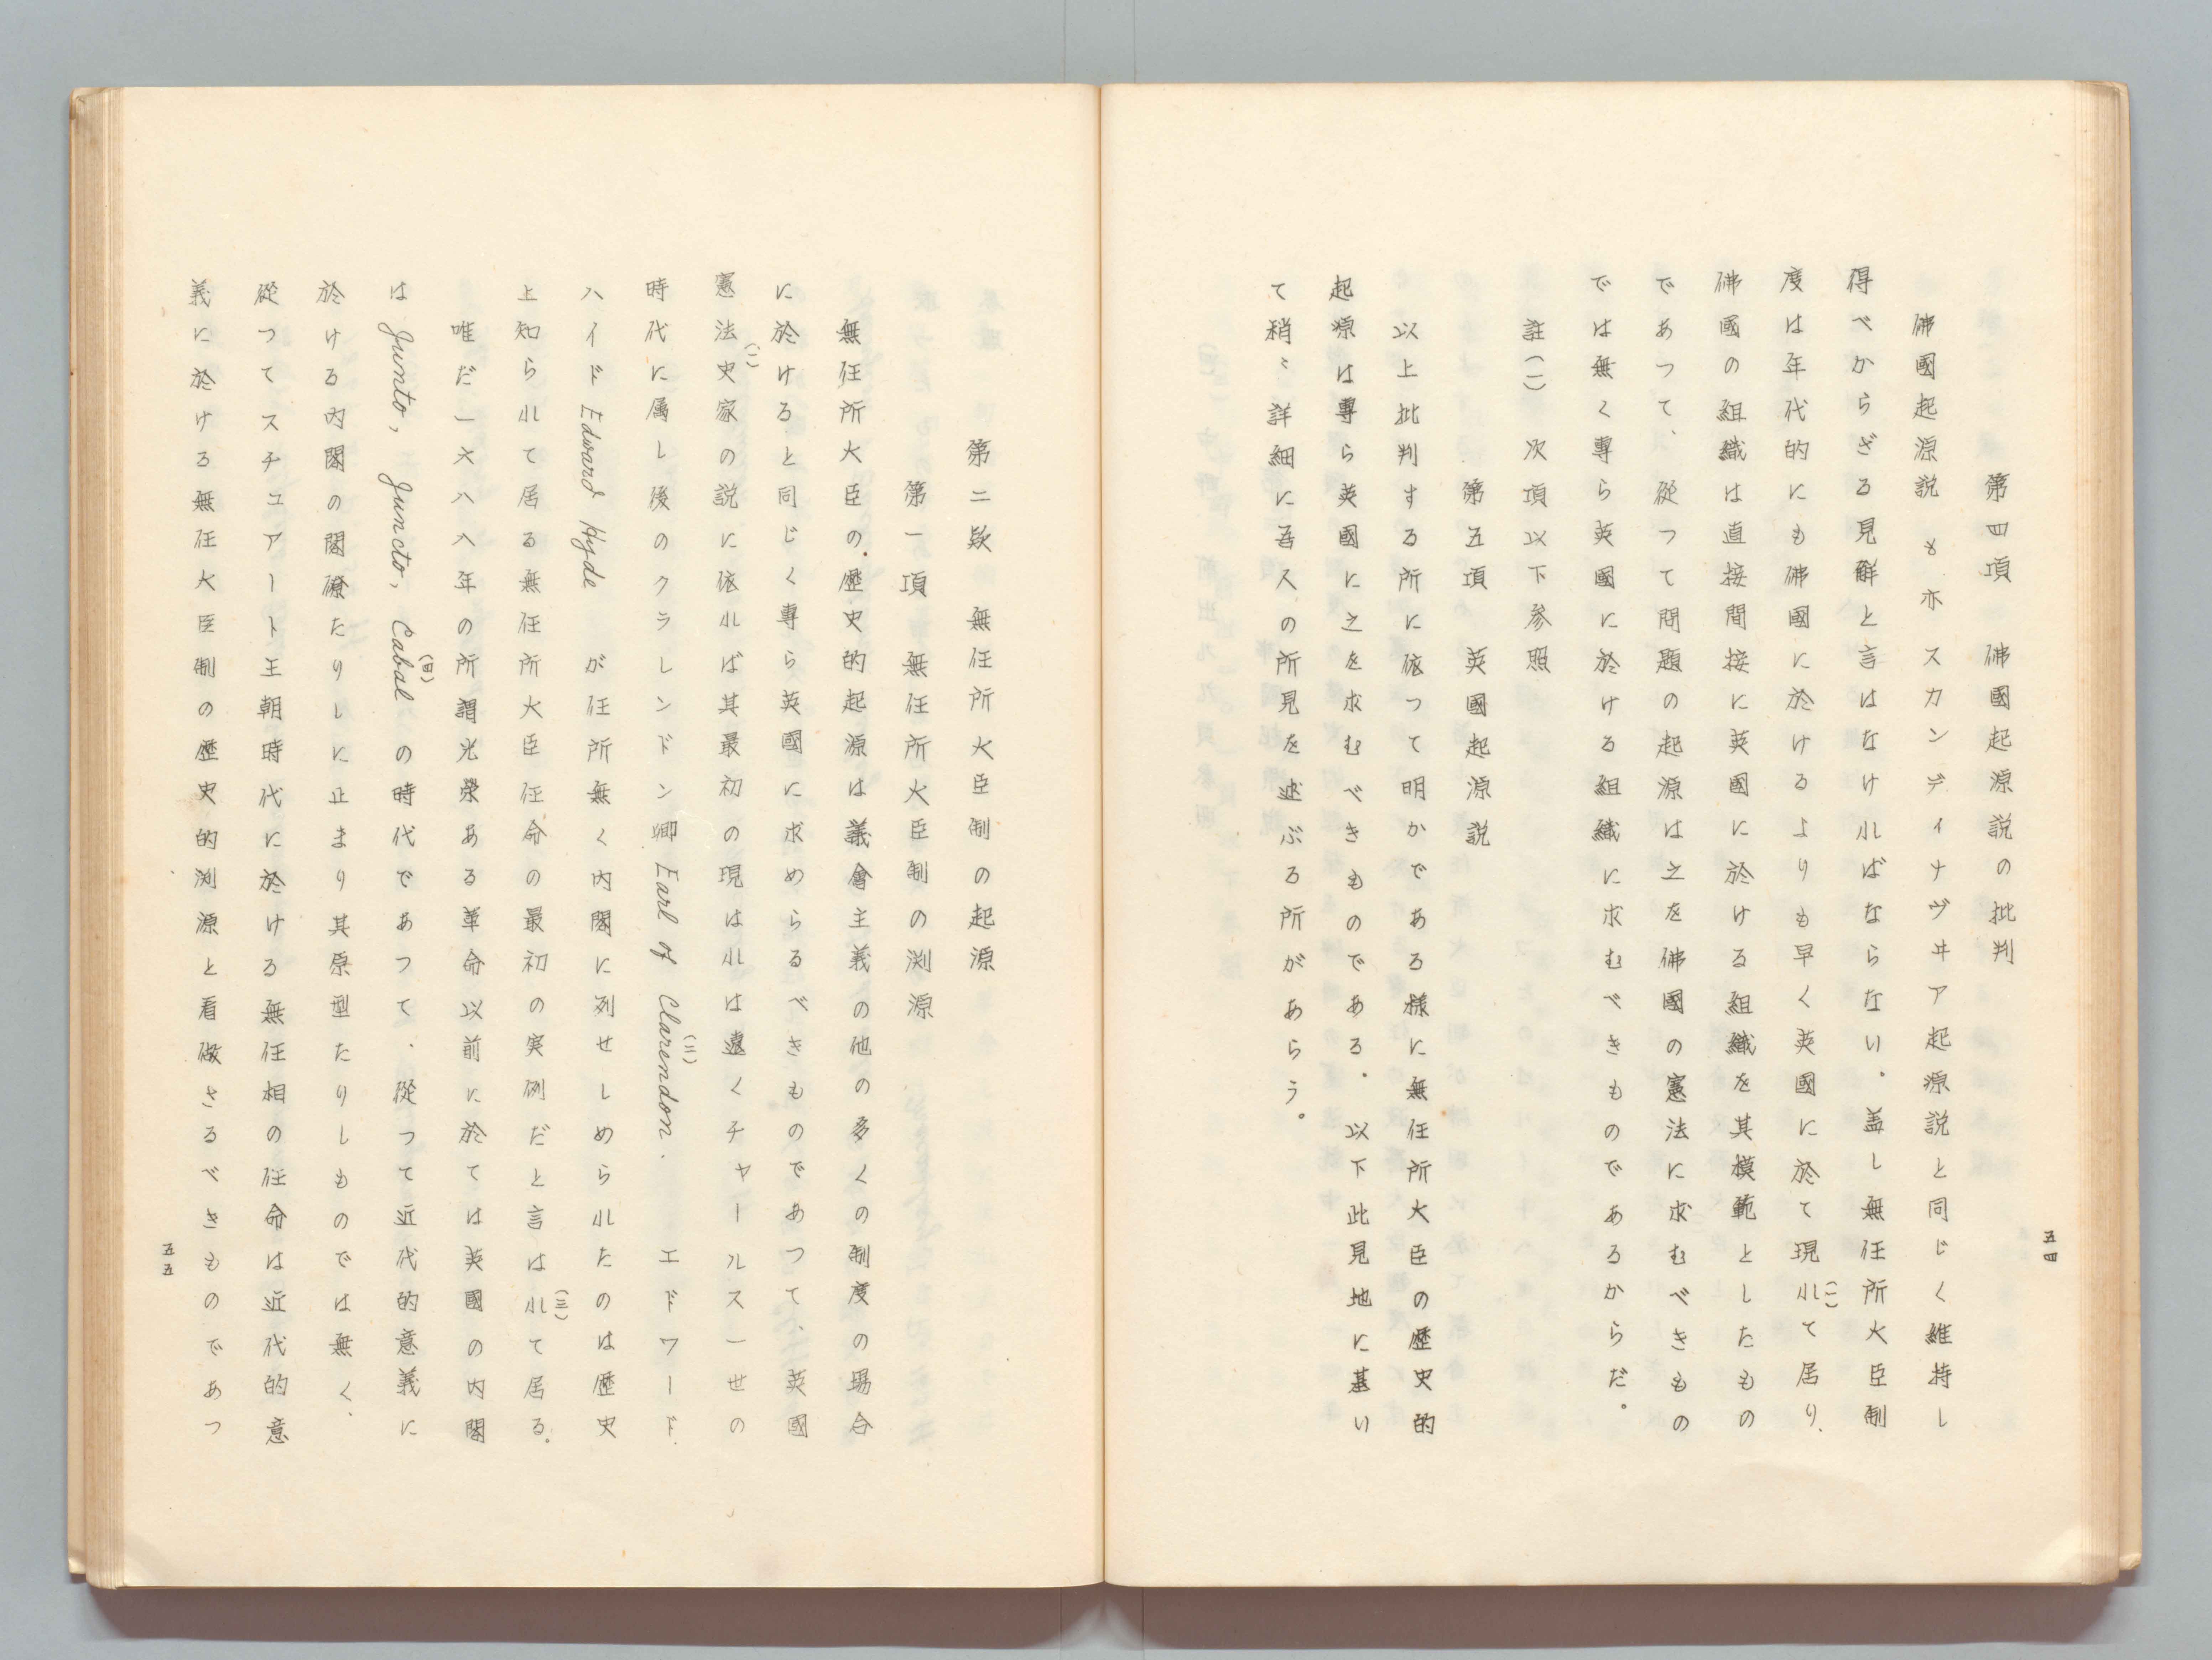 第四項　佛國起源説の批判
佛國起源説も亦スカンディナヴヰア起源説と同じく維持し
得べからざる見解と言はなければならない。蓋し無任所大臣制
度は年代的にも佛國に於けるよりも早く英國に於て現れて居り、(一)
佛國の組織は直接間接に英國に於ける組織を其模範としたもの
であつて、從つて問題の起源は之を佛國の憲法に求むべきもの
では無く專ら英國に於ける組織に求むべきものであるからだ。
註(一)　次項以下參照
第五項　英國起源説
以上批判する所に依つて明かである樣に無任所大臣の歴史的
起源は專ら英國に之を求むべきものである。以下此見地に基い
て稍〻詳細に吾人の所見を述ぶる所があらう。
五四
第二款　無任所大臣制の起源
第一項　無任所大臣制の淵源
無任所大臣の歴史的起源は議會主義の他の多くの制度の場合
に於けると同じく專ら英國に求めらるべきものであつて、英國
憲法史家の説に依れば其最初の現はれは遠くチャールス一世の(一)
時代に属し後のクラレンドン卿 Earl of Clarendon.(二)　エドワード
ハイド Edward Hyde が任所無く内閣に列せしめられたのは歴史
上知られて居る無任所大臣任命の最初の実例だと言はれて居る。(三)
唯だ一六八八年の所謂光榮ある革命以前に於ては英國の内閣
は Junto, Juncto, Cabal(四) の時代であつて、從つて近代的意義に
於ける内閣の閣僚たりしに止まり其原型たりしものでは無く、
從つてスチュアート王朝時代に於ける無任相の任命は近代的意
義に於ける無任大臣制の歴史的淵源と看做さるべきものであつ
五五